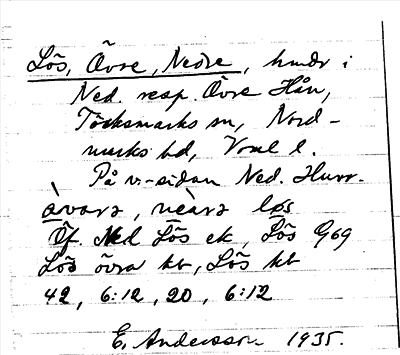 Lös, Övre, Nedre, hmdr i
Ned. resp. Övre Hån,
Töcksmarks sn, Nord-
marks hd, Vrml l.
På v.-sidan Ned. Hurr.
ə̀vərə, nèərə løs
Jfr. Ned Lös ek, Lös G69
Lös övra kt, Lös kt
42, 6:12, 20, 6:12
E. Andersson 1935.